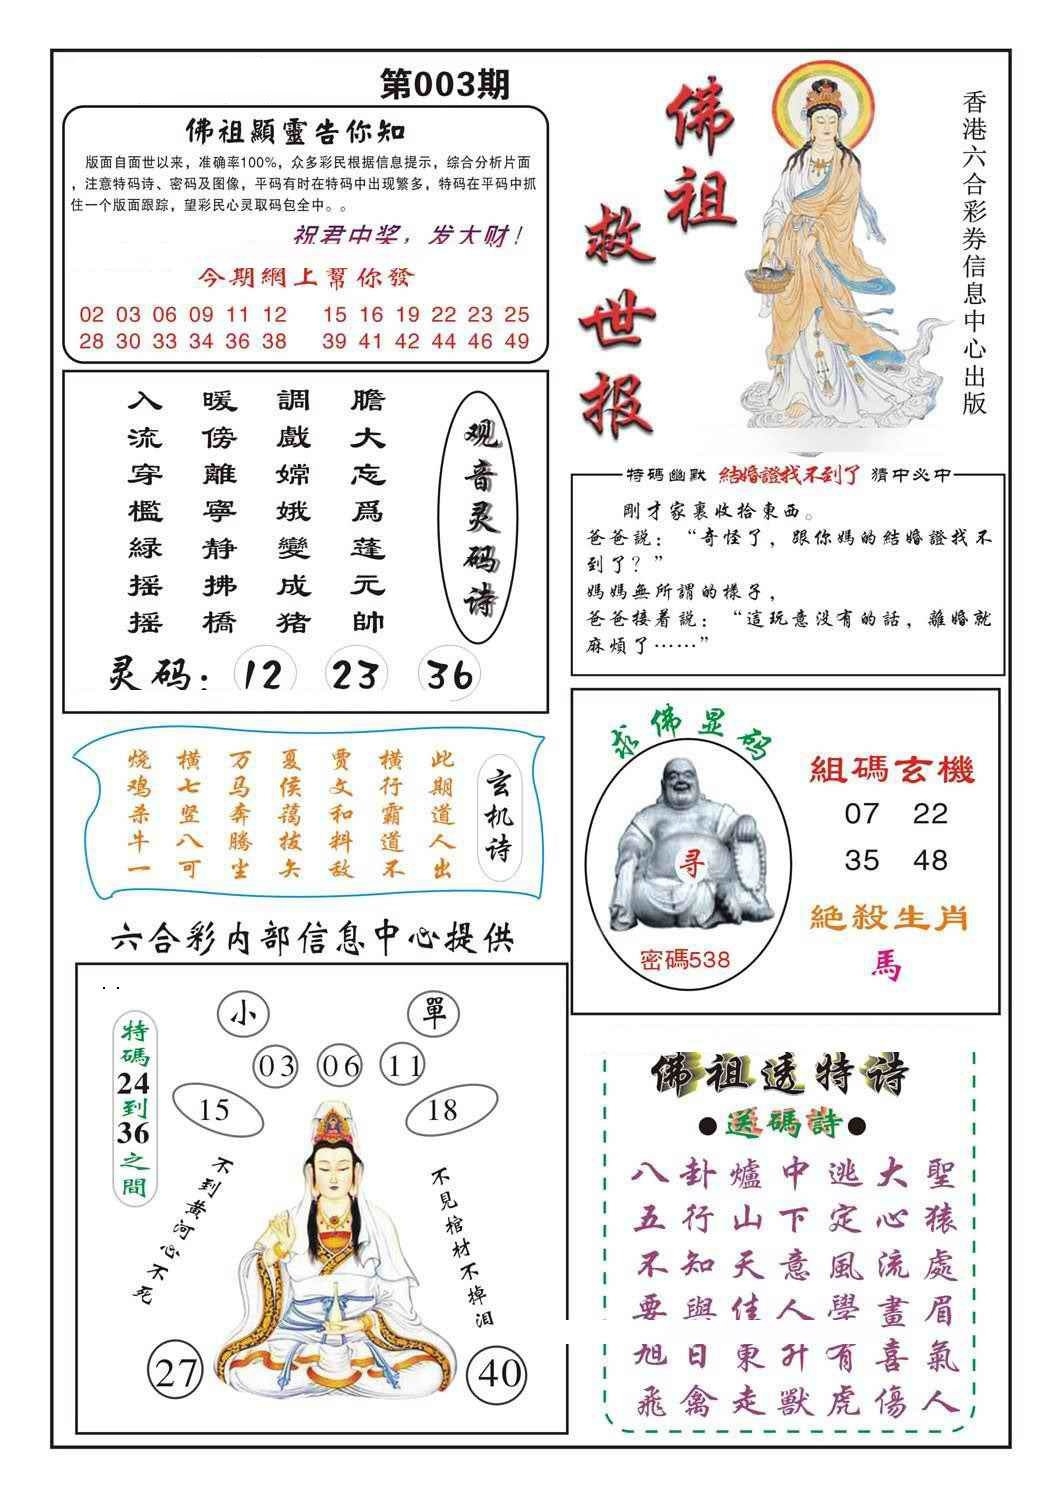 第003期
佛祖顯靈告你知
版面自面世以来，准确率100%，众多彩民根据信息提示，综合分析片面
，注意特码诗、密码及图像，平码有时在特码中出现繁多，特码在平码中抓
住一个版面跟踪，望彩民心灵取码包全中。。
祝君中奖，发大财！
今期網上幫你發
02 03 06 09 11 12 15 16 19 22 23 25
28 30 33 34 36 38 39 41 42 44 46 49
佛祖
救世报
香港六合彩券信息中心出版
观音灵码诗
膽大忘爲蓬元帥
調戲嫦娥變成猪
暖傍離寧静拂橋
入流穿檻緑摇摇
灵码：12 23 36
特码幽默 結婚證找不到了 猜中必中
剛才家裏收拾東西。
爸爸説：“奇怪了，跟你媽的結婚證找不
到了？”
媽媽無所謂的樣子，
爸爸接着説：“這玩意没有的話，離婚就
麻煩了……”
玄机诗
此期道人出
横行霸道不
贾文和料敌
夏侯蔼拔矢
万马奔騰尘
横七竖八可
烧鸡杀牛一
求佛显码
寻
密碼538
組碼玄機
07 22
35 48
絶殺生肖
馬
六合彩内部信息中心提供
特碼24到36之間
小
單
03 06 11
15
18
不到黄河心不死
不見棺材不掉泪
27
40
佛祖透特诗
●送碼詩●
八卦爐中逃大聖
五行山下定心猿
不知天意風流處
要與佳人學畫眉
旭日東升有喜氣
飛禽走獸虎傷人